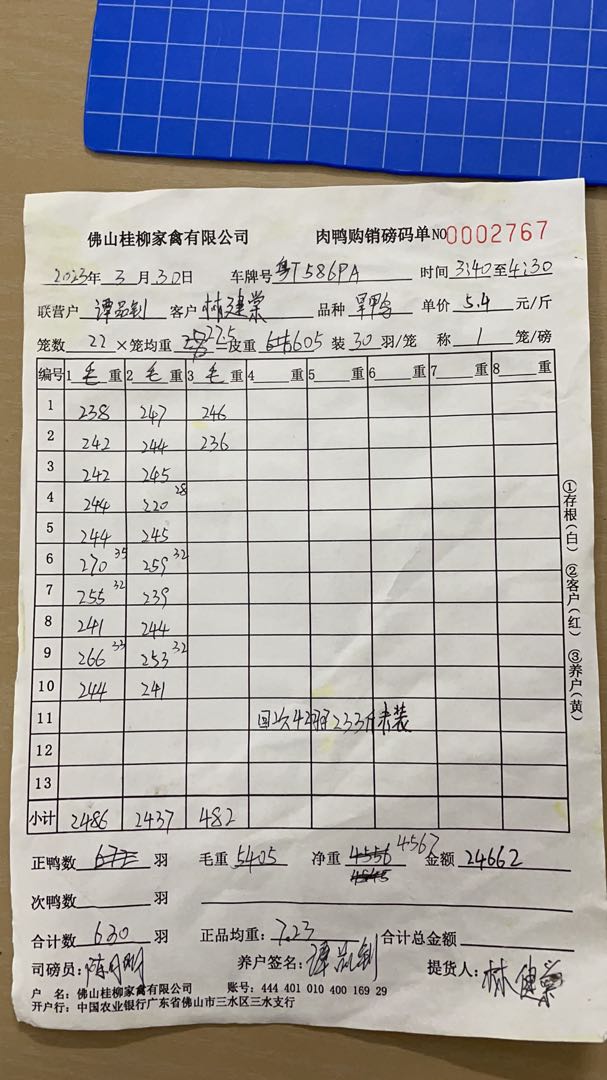 佛山桂柳家禽有限公司 肉鸭购销磅码单 NO 0002767
2023年 3 月 30 日 车牌号 粤T586PA 时间 3:40至4:30
联营户 谭品钊 客户 林建棠 品种 单价 5.4 元/斤
笼数 22 ×笼均重 225 皮重 605 装 30 羽/笼 称 1 笼/磅
编号 1 毛 重 2 毛 重 3 毛 重 4 重 5 重 6 重 7 重 8 重
1 238 247 246
2 242 244 236
3 242 245
4 244 220 28
5 244 245
6 270 35 259 32
7 255 32 239
8 241 244
9 266 33 253 32
10 244 241
11 回 42 233斤未装
12
13
小计 2486 2437 482
正鸭数 羽 毛重 5405 净重 4556 4567 金额 24662
4545
次鸭数 羽
合计数 630 羽 正品均重: 7.23 合计总金额
司磅员: 养户签名: 谭品钊 提货人: 林健棠
户 名: 佛山桂柳家禽有限公司 账号: 444 401 010 400 169 29
开户行: 中国农业银行广东省佛山市三水区三水支行
①存根(白) ②客户(红) ③养户(黄)